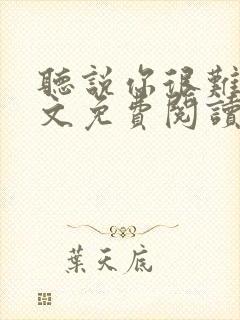 聽說你很難
文免費閱讀
葉天底